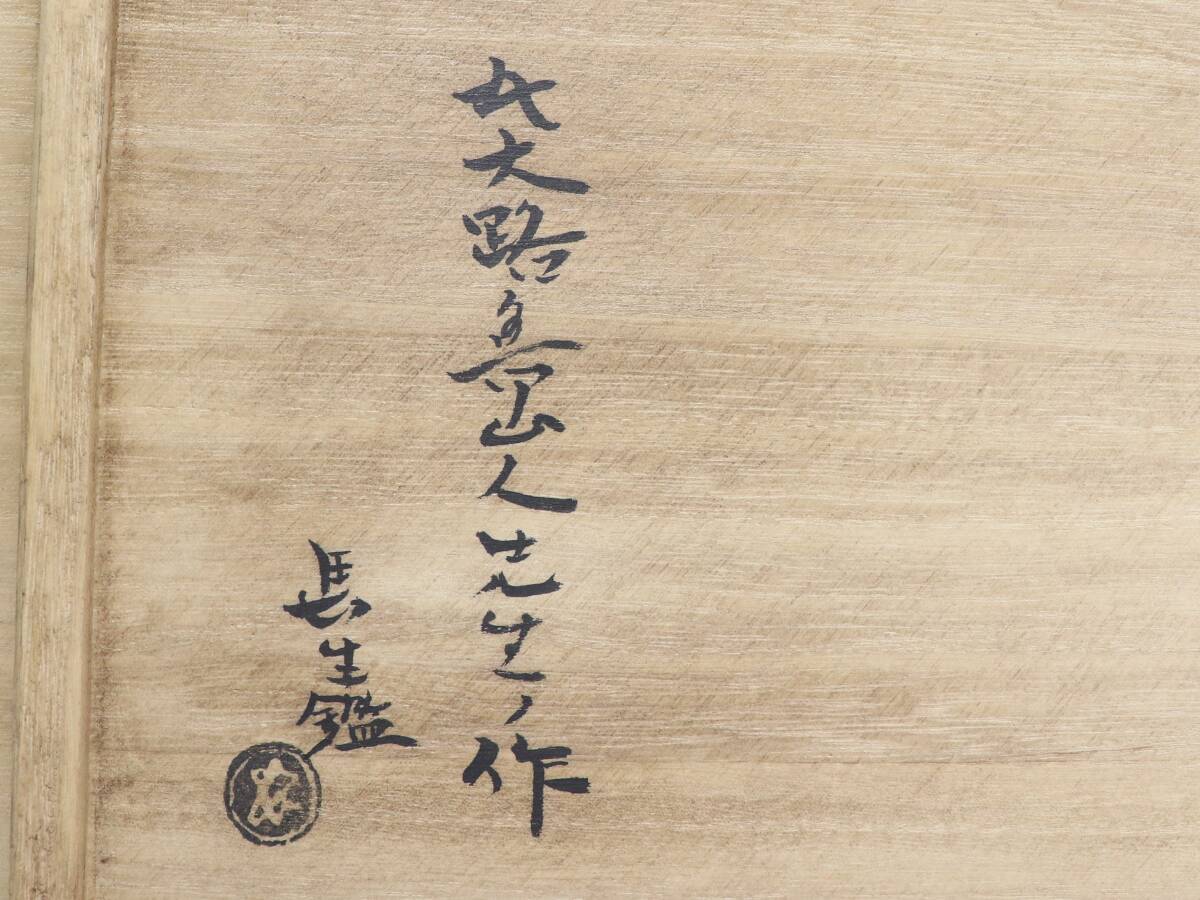 北大路魯山人先生ノ作
長生鑑